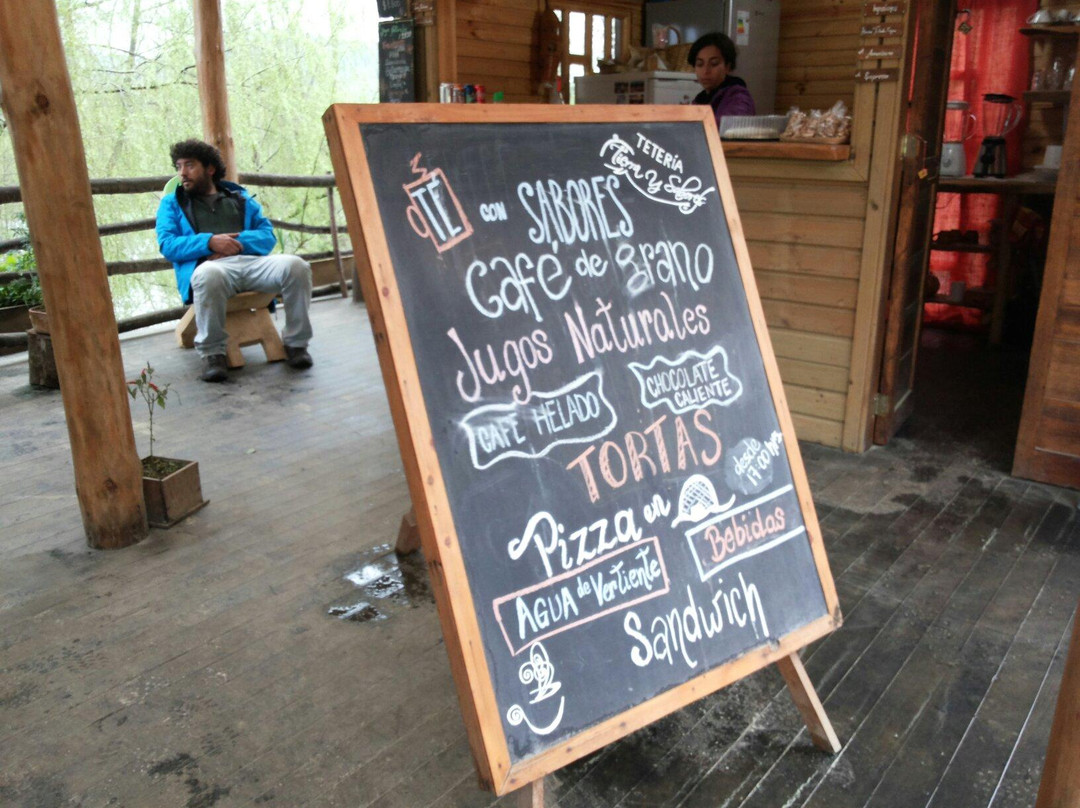 TETERÍA
TÉ con SABORES
Café de grano
Jugos Naturales
CAFÉ HELADO
CHOCOLATE
CALIENTE
TORTAS
desde
17:00 hrs
Pizza en
Bebidas
AGUA de Vertiente
Sandwich